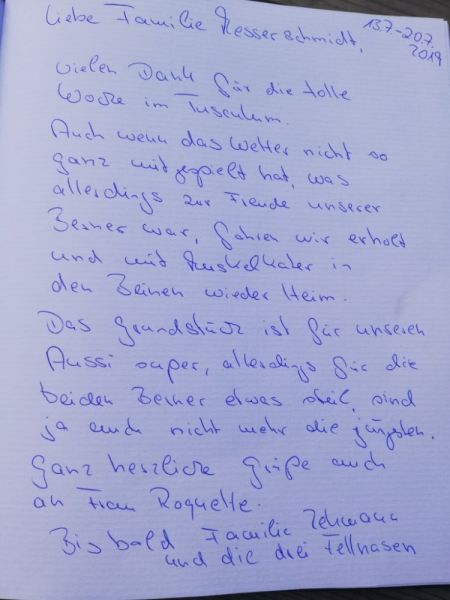 Liebe Familie Messerschmidt,
13.7-20.7.
2019
vielen Dank für die tolle
Woche im Tusculum.
Auch wenn das Wetter nicht so
ganz mitgespielt hat, was
allerdings zur Freude unserer
Berner war, fahren wir erholt
und mit Muskelkater in
den Beinen wieder Heim.
Das Grundstück ist für unseren
Aussi super, allerdings für die
beiden Berner etwas steil, sind
ja auch nicht mehr die jüngsten.
Ganz herzliche Grüße auch
an Frau Roquette.
Bis bald Familie Zehmann
und die drei Fellnasen